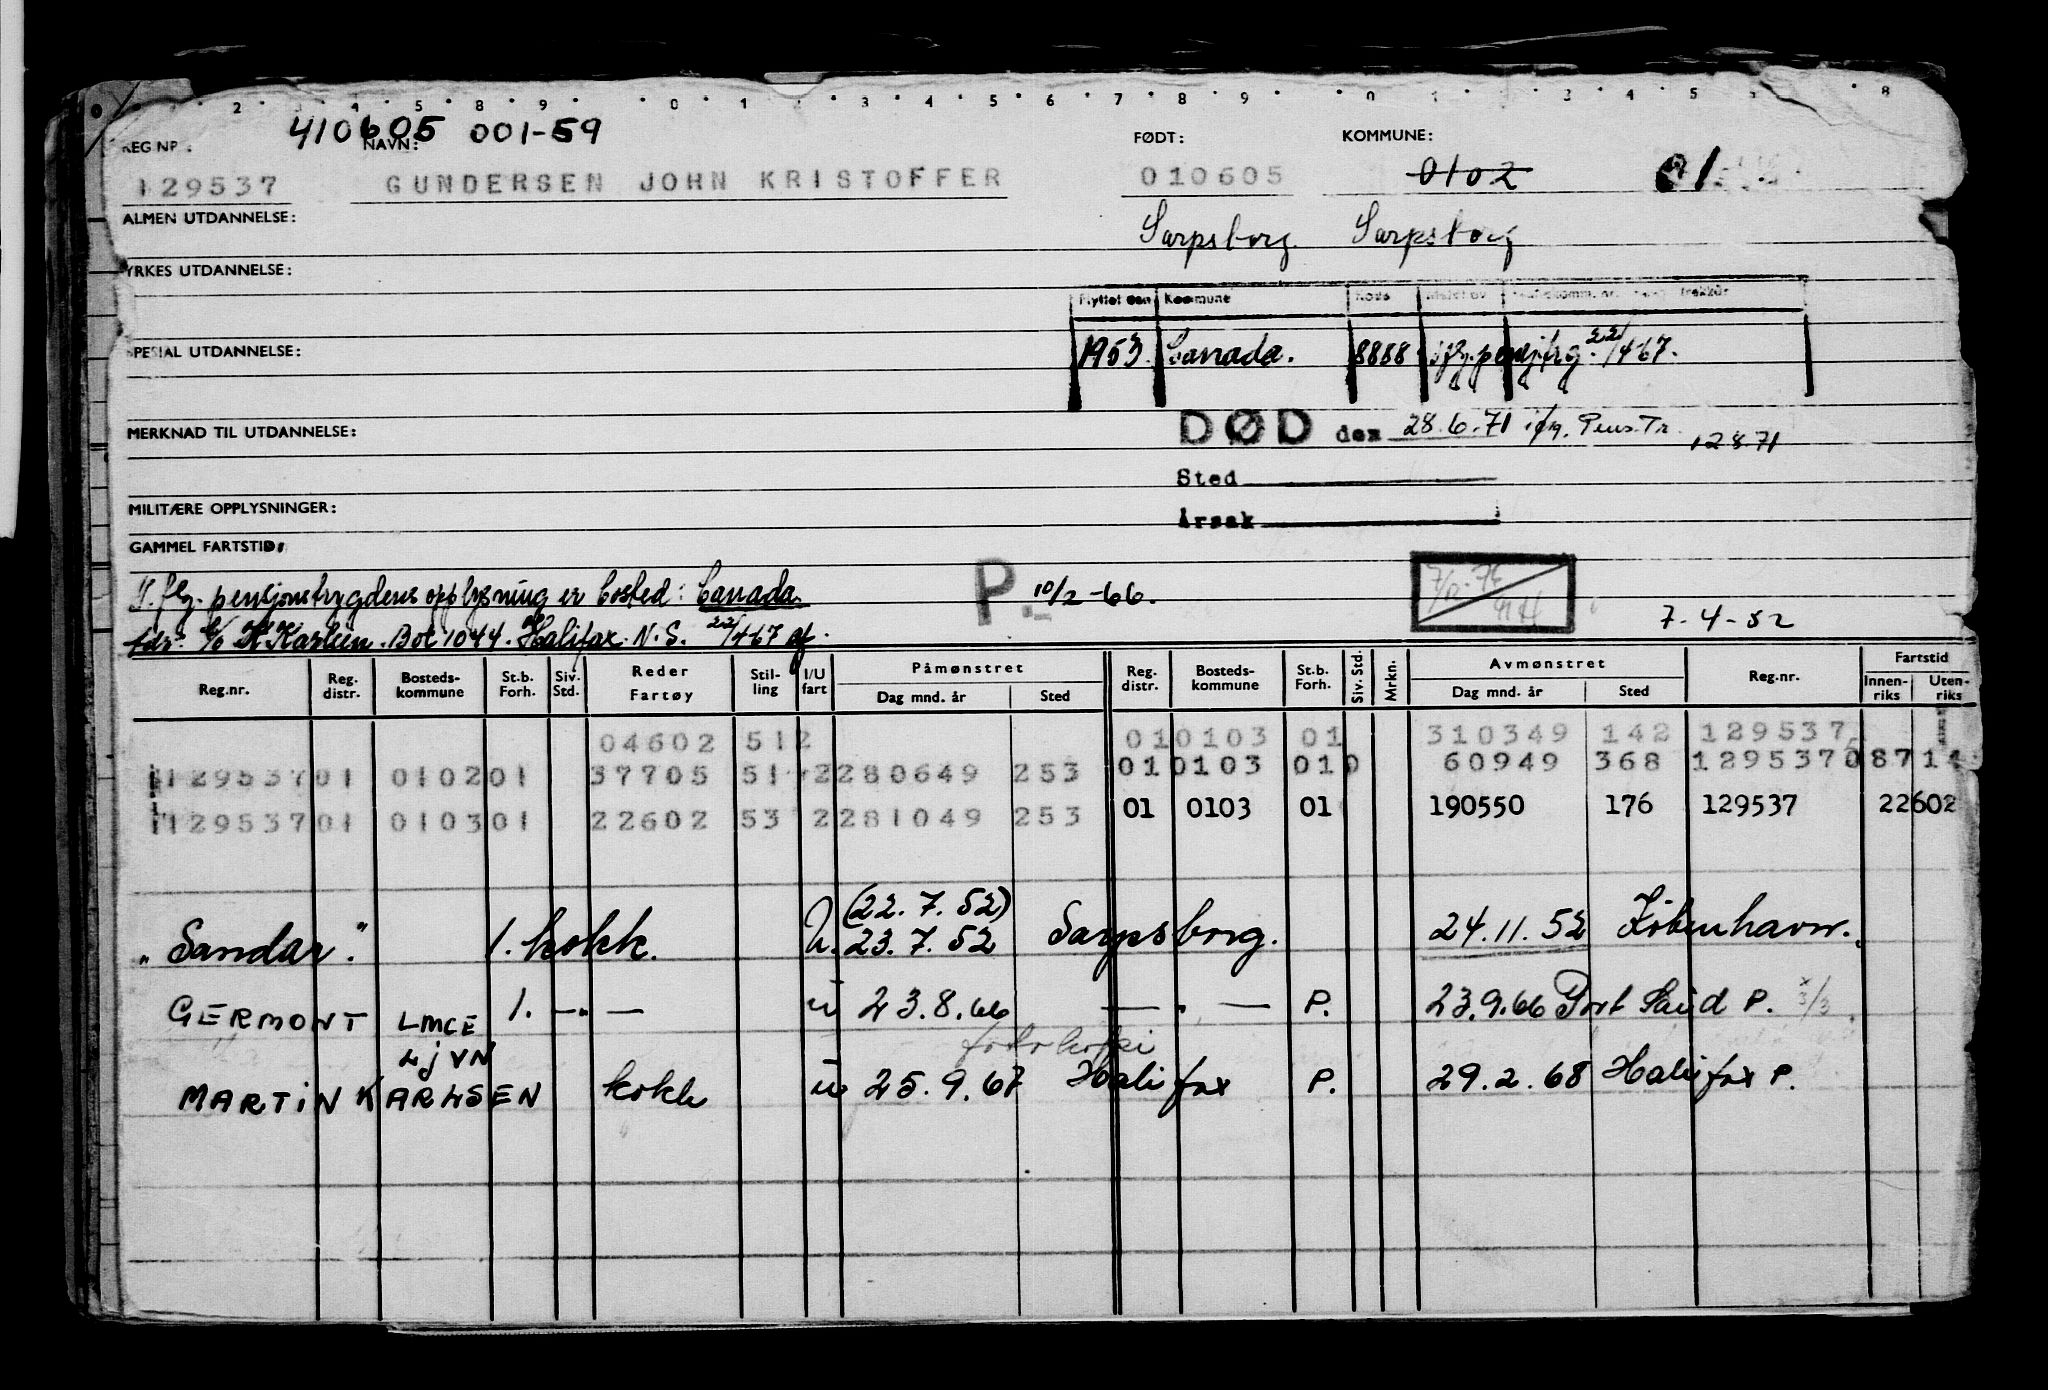 410605 001-59
REG NR: NAVN: FØDT: KOMMUNE:
129537 GUNDERSEN JOHN KRISTOFFER 010605 0102 01
ALMEN UTDANNELSE:
Sarpsborg. Sarpsborg
YRKES UTDANNELSE:
Flyttet den Kommune Kode Meldt av trekkår
SPESIAL UTDANNELSE:
1953. Canada. 8888 22/467.
MERKNAD TIL UTDANNELSE:
DØD den 28.6.71 ifg. Pens.Tr. 12871
Sted
MILITÆRE OPPLYSNINGER:
Årsak
GAMMEL FARTSTID:
I. flg. pensjonstrygdens opplysning er bosted: Canada
P. 10/2-66.
adr: c/o K Karlsen. Box 1044. Halifax. N.S. 22/467
7-4-52
Reg.nr. Reg. distr. Bosteds- kommune St.b. Forh. Siv. Std. Reder Fartøy Stil- ling I/U fart Påmønstret Dag mnd. år Sted Reg. distr. Bosteds- kommune St.b. Forh. Siv. Std. Mrkn. Avmønstret Dag mnd. år Sted Reg.nr. Fartstid Innen- riks Uten- riks
04602 512 010103 01 310349 142 129537
129537 01 0102 01 37705 51 2 280649 253 01 0103 01 0 60949 368 129537 0 87 14
129537 01 0103 01 22602 53 2 281049 253 01 0103 01 190550 176 129537 22602
(22.7.52)
"Sandar". 1. kokk. U. 23.7.52 Sarpsborg. 24.11.52 København.
GERMONT LMCE 1. —„— u 23.8.66 —„— P. 23.9.66 Port Said P. x 3/3
LJVN
MARTIN KARLSEN kokk u 25.9.67 Halifax P. 29.2.68 Halifax P.